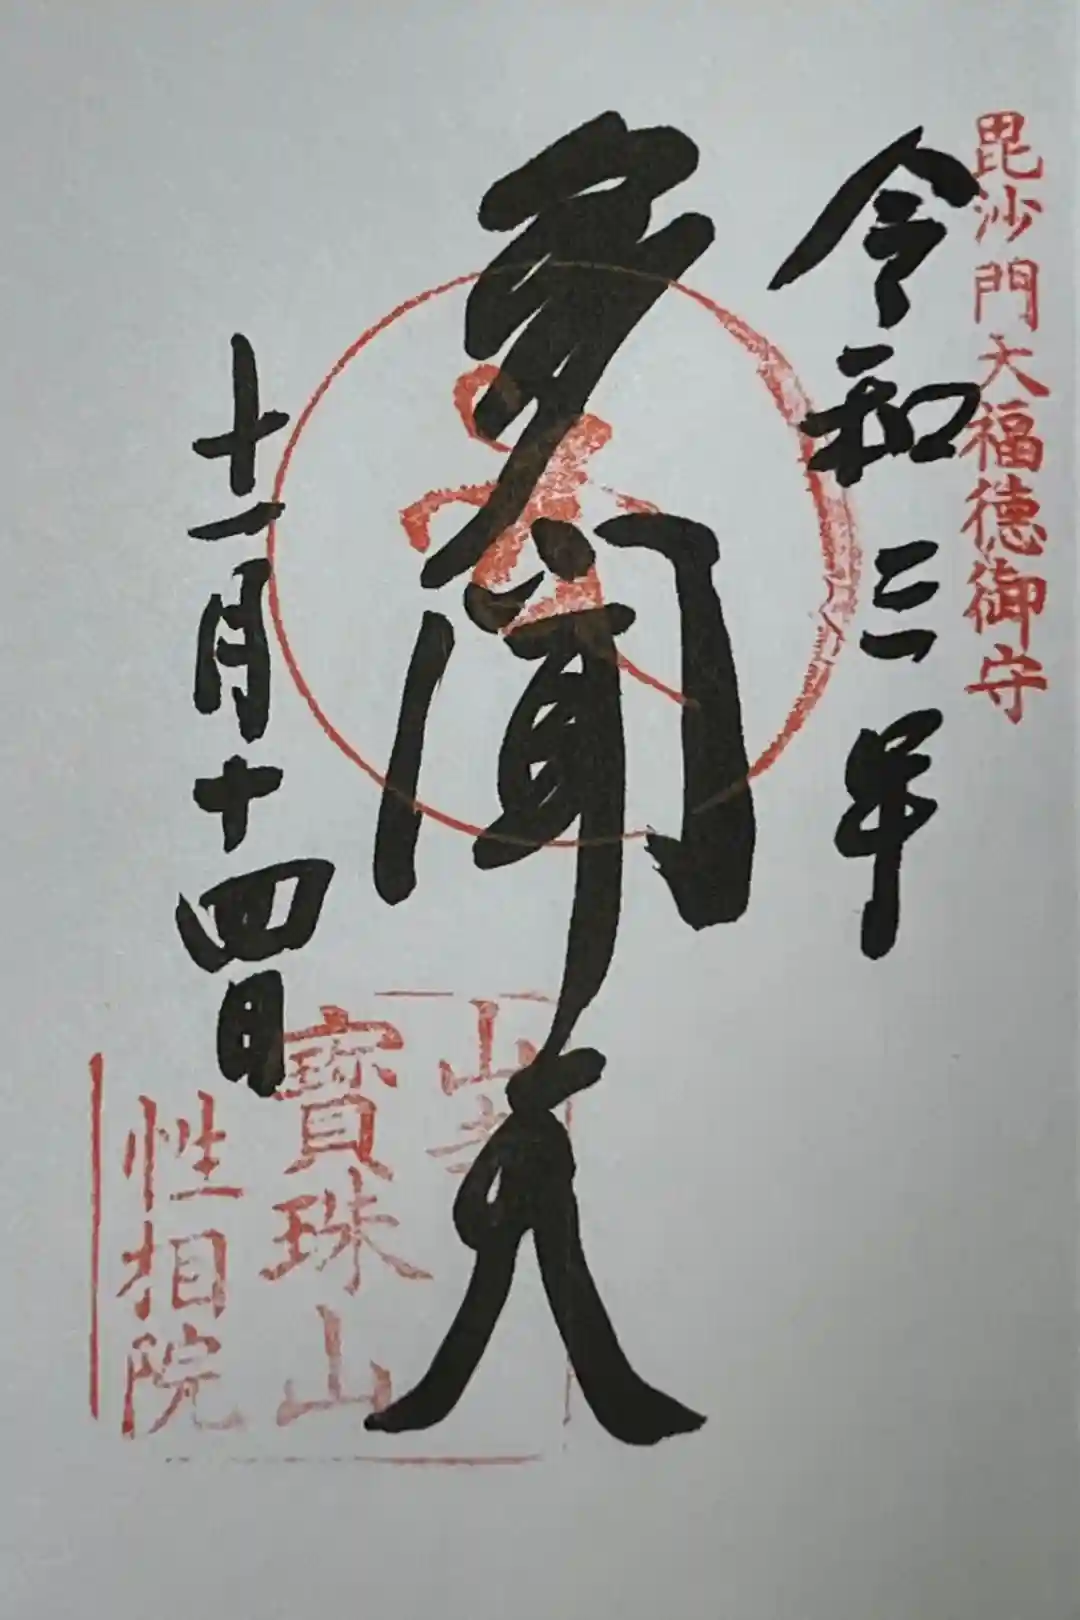 毘沙門大福徳御守
令和三年
多聞天
十一月十四日
山寺
寳珠山
性相院